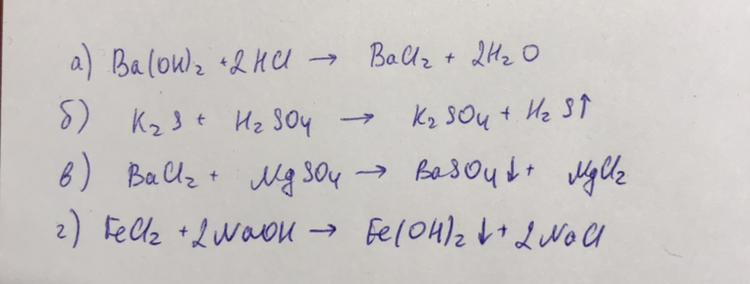 а) Ba(OH)₂ + 2HCl → BaCl₂ + 2H₂O
б) K₂S + H₂SO₄ → K₂SO₄ + H₂S↑
в) BaCl₂ + MgSO₄ → BaSO₄↓ + MgCl₂
г) FeCl₂ + 2NaOH → Fe(OH)₂↓ + 2NaCl